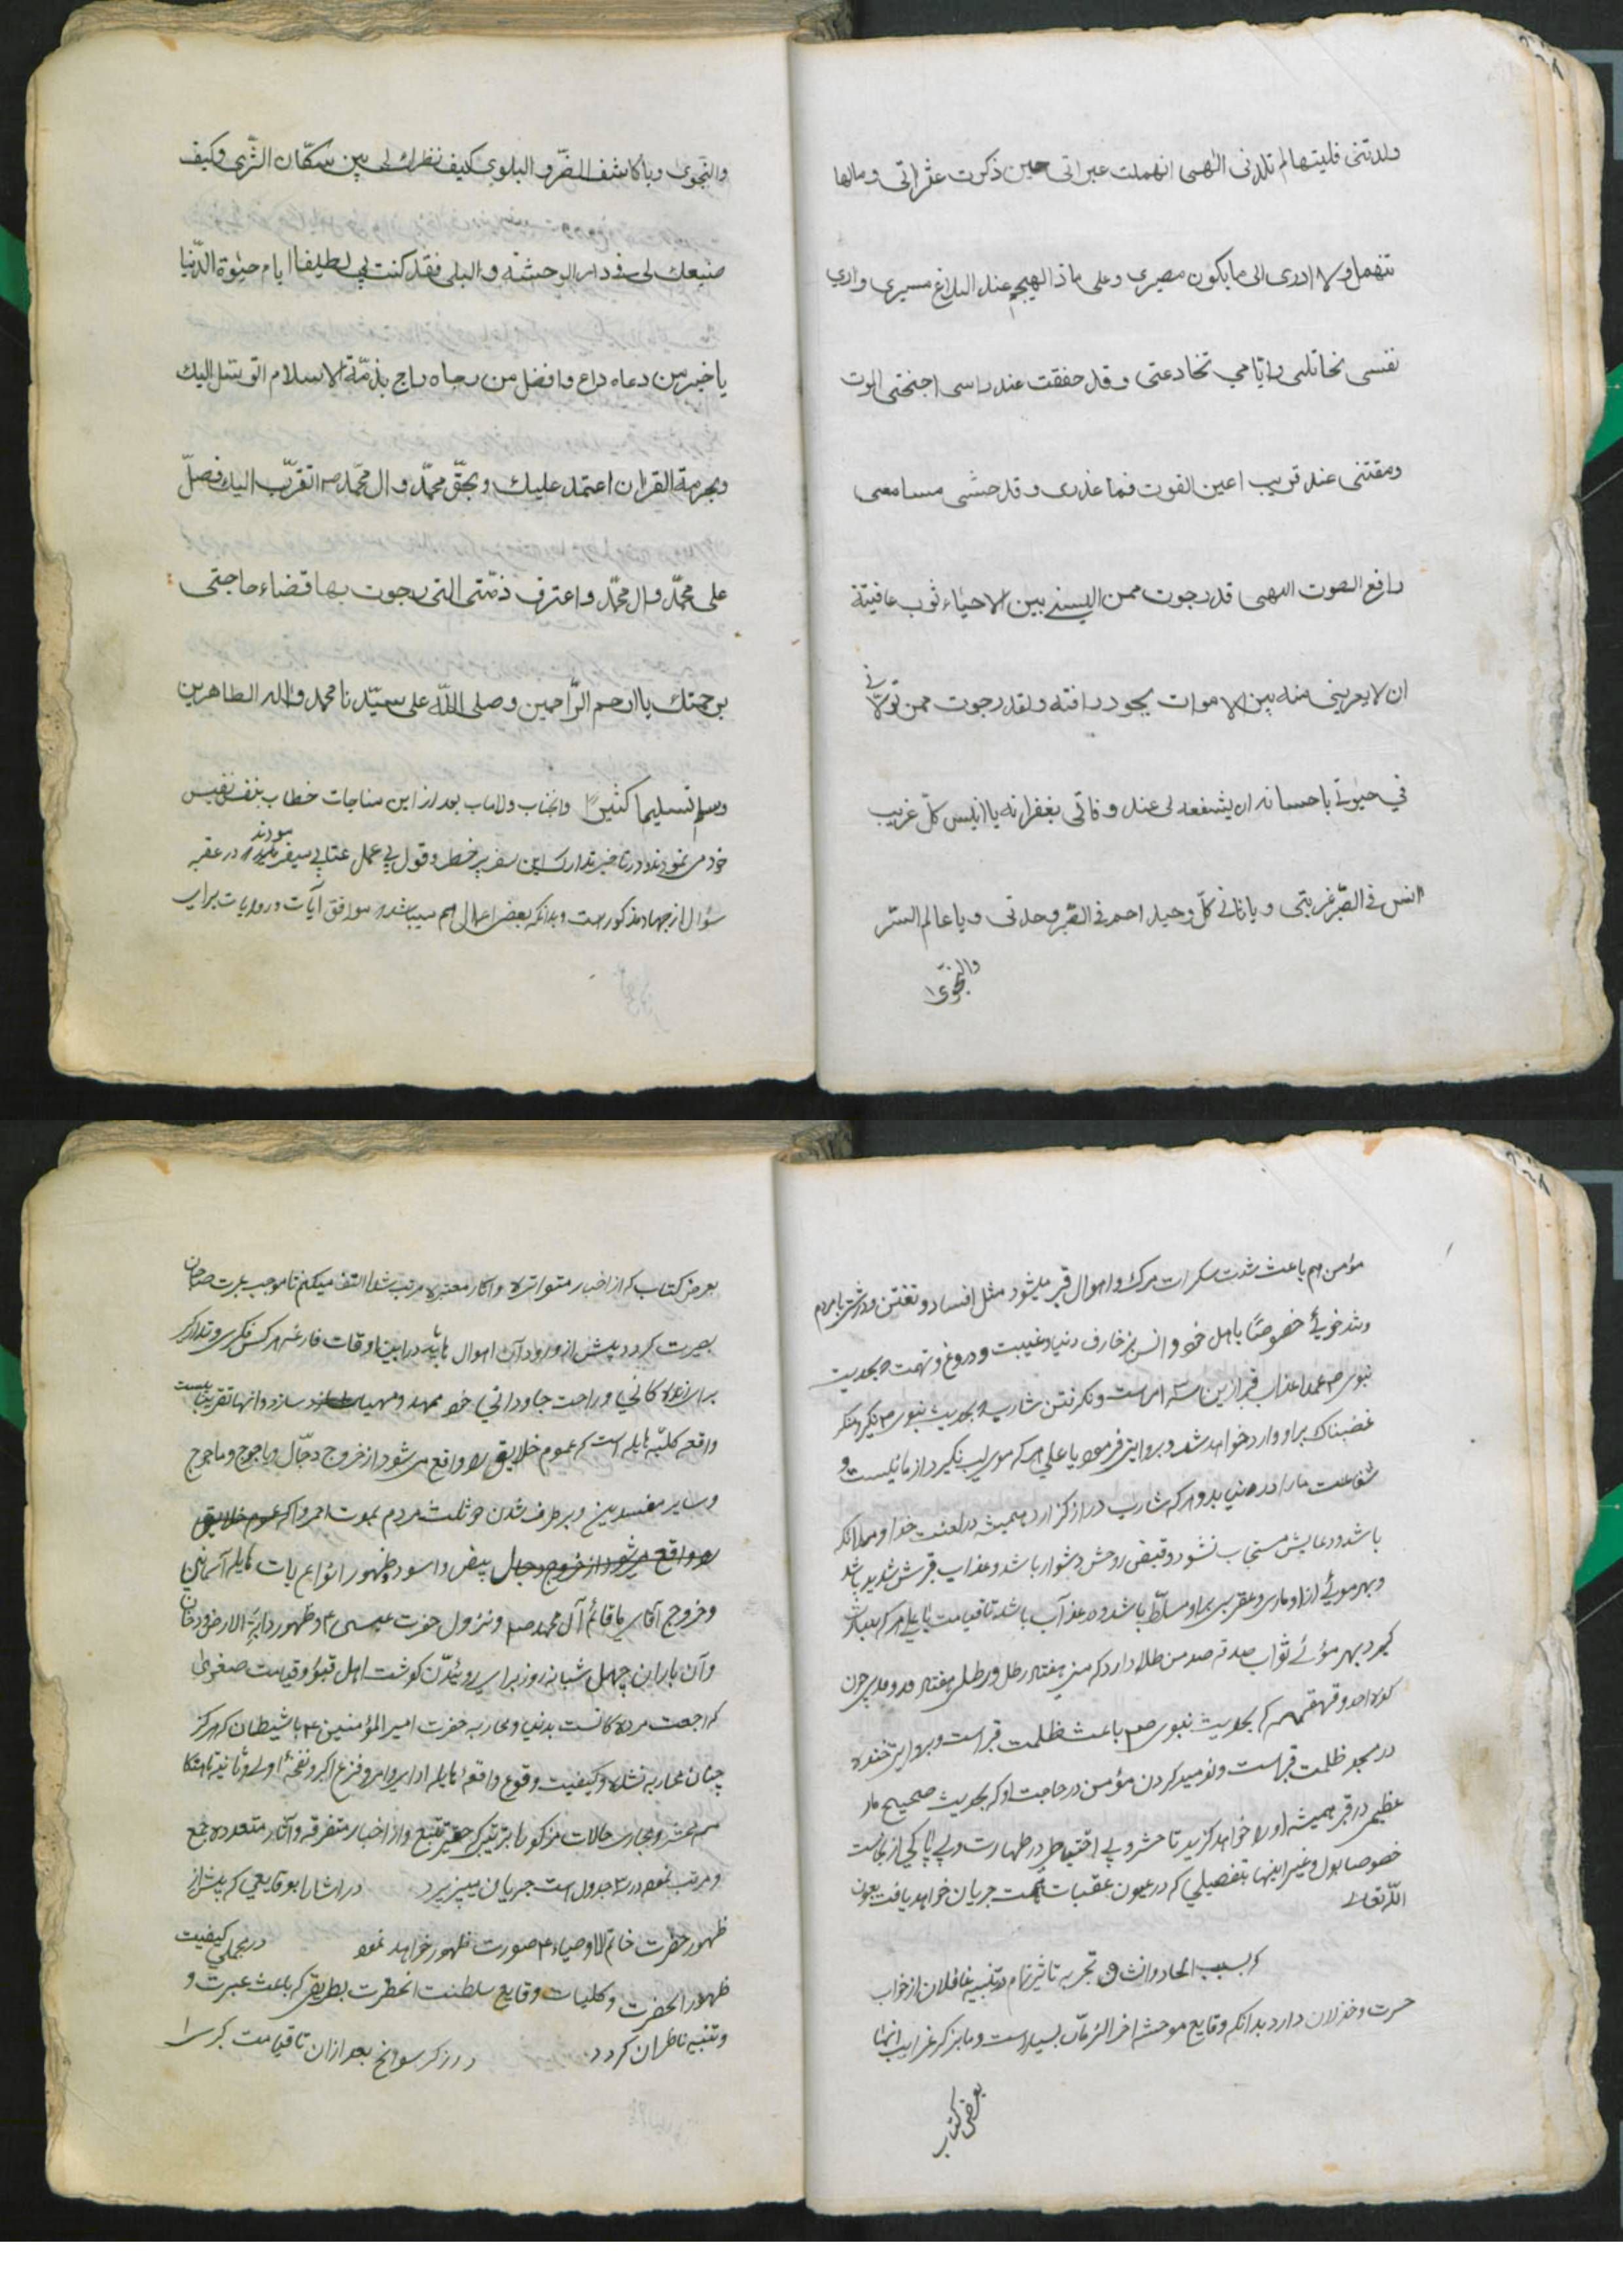 ولدتنی فلیتها لم تلدنی الهی انهملت عبراتی حین ذکرت عثراتی ومالها
تنهمل ولا ادری الی ما یکون مصیری وعلی ماذا یهجم عند البلاغ مسیری واری
نفسی تخاتلنی وایامی تخادعنی وقد خفقت عند راسی اجنحتی الموت
ومقتنی عند قریب اعین الفوت فما عذری وقد حشی مسامعی
رافع الصوت الهی قد رجوت ممن البسنی بین الاحیاء ثوب عافیتة
ان لا یعرینی منه بین الاموات بجود رافته ولقد رجوت ممن تولّانی
فی حیوتی باحسانه ان یشفعه لی عند وفاتی بغفرانه یا انیس کلّ غریب
انس فی القبر غربتی ویا ثانی کلّ وحید ارحم فی القبر وحدتی ویا عالم السّر
والنّجوی
والنّجوی ویا کاشف الضّر و البلوی کیف نظرك لی بین سکّان الثّری وکیف
صنیعك لی فی دار الوحشة والبلی فقد کنت بی لطیفا ایام حیوة الدّنیا
یا خیر من دعاه داع وافضل من رجاه راج بذمّة الاسلام اتوسّل الیك
وبحرمة القران اعتمد علیك وبحقّ محمّد وال محمّد ص اتقرّب الیك فصلّ
علی محمّد وال محمّد واعترف ذمّتی التی رجوت بها قضاء حاجتی
برحمتك یا ارحم الرّاحمین وصلی اللّٰه علی سیّدنا محمد واله الطاهرین
وسلم تسلیما کثیرا وانجناب ولاماب بعد از این مناجات خطاب بنفس نفیس
خود می نمودند ودر تاخیر تدارک این سفر پر خطر وقول بی عمل عتاب میفرمودند در عقبه
سؤال از جهاد مذکور است وبدانکه بعضی اعمال هم میباشد که موافق آیات وروایات برای
مؤمن هم باعث شدت سکرات مرك واهوال قبر میشود مثل افساد وتفتن ودرشتی با مردم
وتند خویئ خصوصًا با اهل خود وانس بزخارف دنیا وغیبت ودروغ وتهمت وبحدیث
نبوی ص عمده اعذاب قبر ازین سه امر است ونکرفتن شارب که بحدیث نبوی ص نکیر ومنکر
غضبناك براو وارد خواهد شد وبروایتی فرمود یا علی هر که موی لب نگیرد از ما نیست و
شفاعت ما را در نیابد وهر که شارب دراز گزارد همیشه در لعنت خدا وملائکه
باشد ودعایش مستجاب نشود وقبض روحش دشوار باشد وعذاب قبرش شدید باشد
وبهر موئی از او ماری وعقربی براو مسلّط باشد ودر عذآب باشد تا قیامت یا علی هر که
کیرد بهر موئی ثواب صد من طلا دارد که منی هفتاد رطل ورطلی هفتاد مد ومدی چون
کوه احد وقهقهه که بحدیث نبوی ص باعث ظلمت قبر است وبروایتی خنده
در مسجد ظلمت قبر است ونومید کردن مؤمن در حاجت او که بحدیث صحیح مار
عظیمی در قبر همیشه او را خواهد گزید تا حشر وبی احتیاطی در طهارت وبی پاکی از نجاست
خصوصا بول وغیر اینها بتفصیلی که در عیون عقبات جریان خواهد یافت بعون
اللّه تعالی
تاثیر تمام در تنبیه غافلان از خواب
حسرت وخذلان دارد بدانکه وقایع موحشه اخر الزّمان بسیار است وما بذکر غرایب انها
بعضی کتاب
بعرض کتاب که از اخبار متواتره واثار معتبره اکتفا میکنم تا موجب عبرت صاحبان
بصیرت کردد وپیش از ورود آن اهوال باید در این اوقات فارغه هر کس فکری وتدارك
برای زندگانی وراحت جاودانی خود ممهد ومهیا سازد وانها تقریبًا بیست
واقعه کلیّه هایله است که عموم خلایق را واقع می شود از خروج دجّال ویاجوج وماجوج
وسایر مفسدین وبرطرف شدن دو ثلث مردم بموت احمر و عموم خلایق
را واقع میشود از خروج دجال بیض واسود وظهور انواع آیات هایله آسمانی
وخروج قائم آل محمد ص ونزول حضرت عیسی ع وظهور دابة الارض ودخان
وآن باران چهل شبانه روز برای روئیدن کوشت اهل قبور وقیامت صغری
که رجعت مرده کانست بدنیا ومحاربه حضرت امیر المؤمنین ع با شیطان که هرکز
چنان محاربه نشده وکیفیت وقوع واقعهٔ هایله وفزع اکبر ونفخهٔ اولی وثانیه تا
حشر ومجاری حالات مزکور را بترتیبی که حقیر تتبع واز اخبار متفرقه وآثار متعدده جمع
ومرتب نموده در ۳ جدول است جریان میپزیرد در اشاراب وقایعی که پیش از
ظهور حضرت خاتم الاوصیاء ع صورت ظهور خواهد نمود در مجملی کیفیت
ظهور الحضرت وکلیات وقایع سلطنت انحضرت بطریقی که باعث عبرت و
وتنبیه ناظران کردد در زکر سوانح بعد ازان تا قیامت کبری